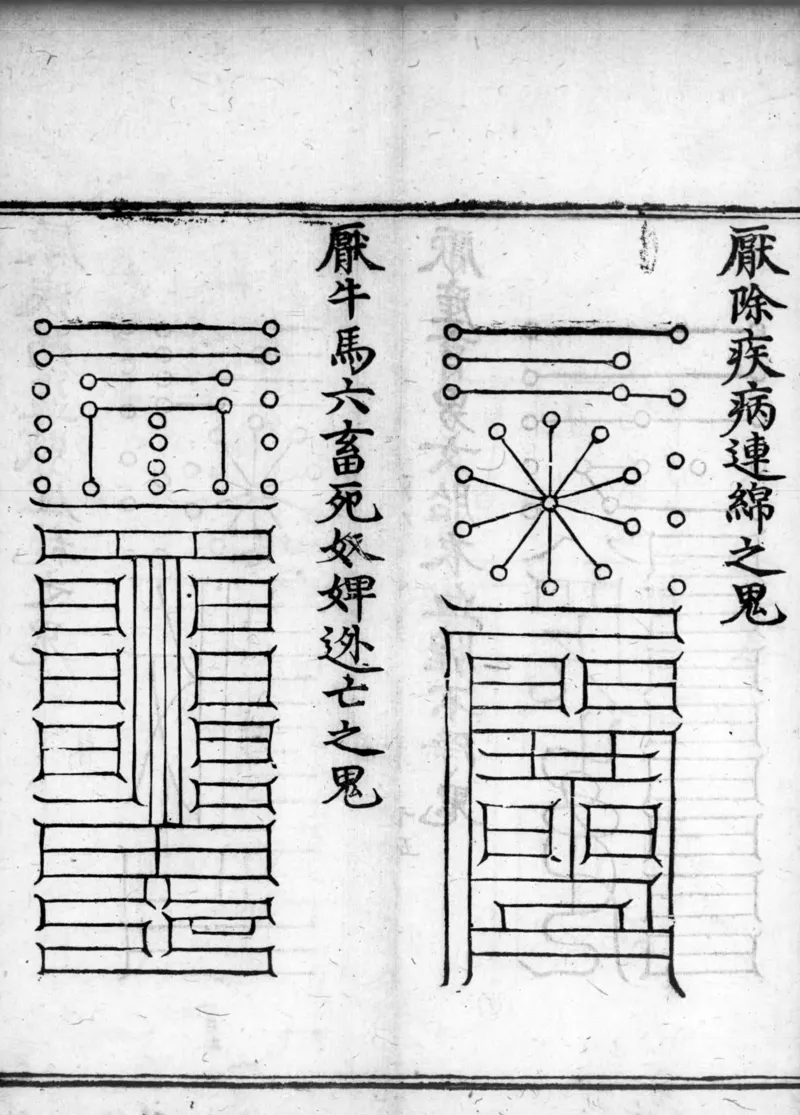 厭除疾病連綿之鬼
厭牛馬六畜死奴婢迯亡之鬼